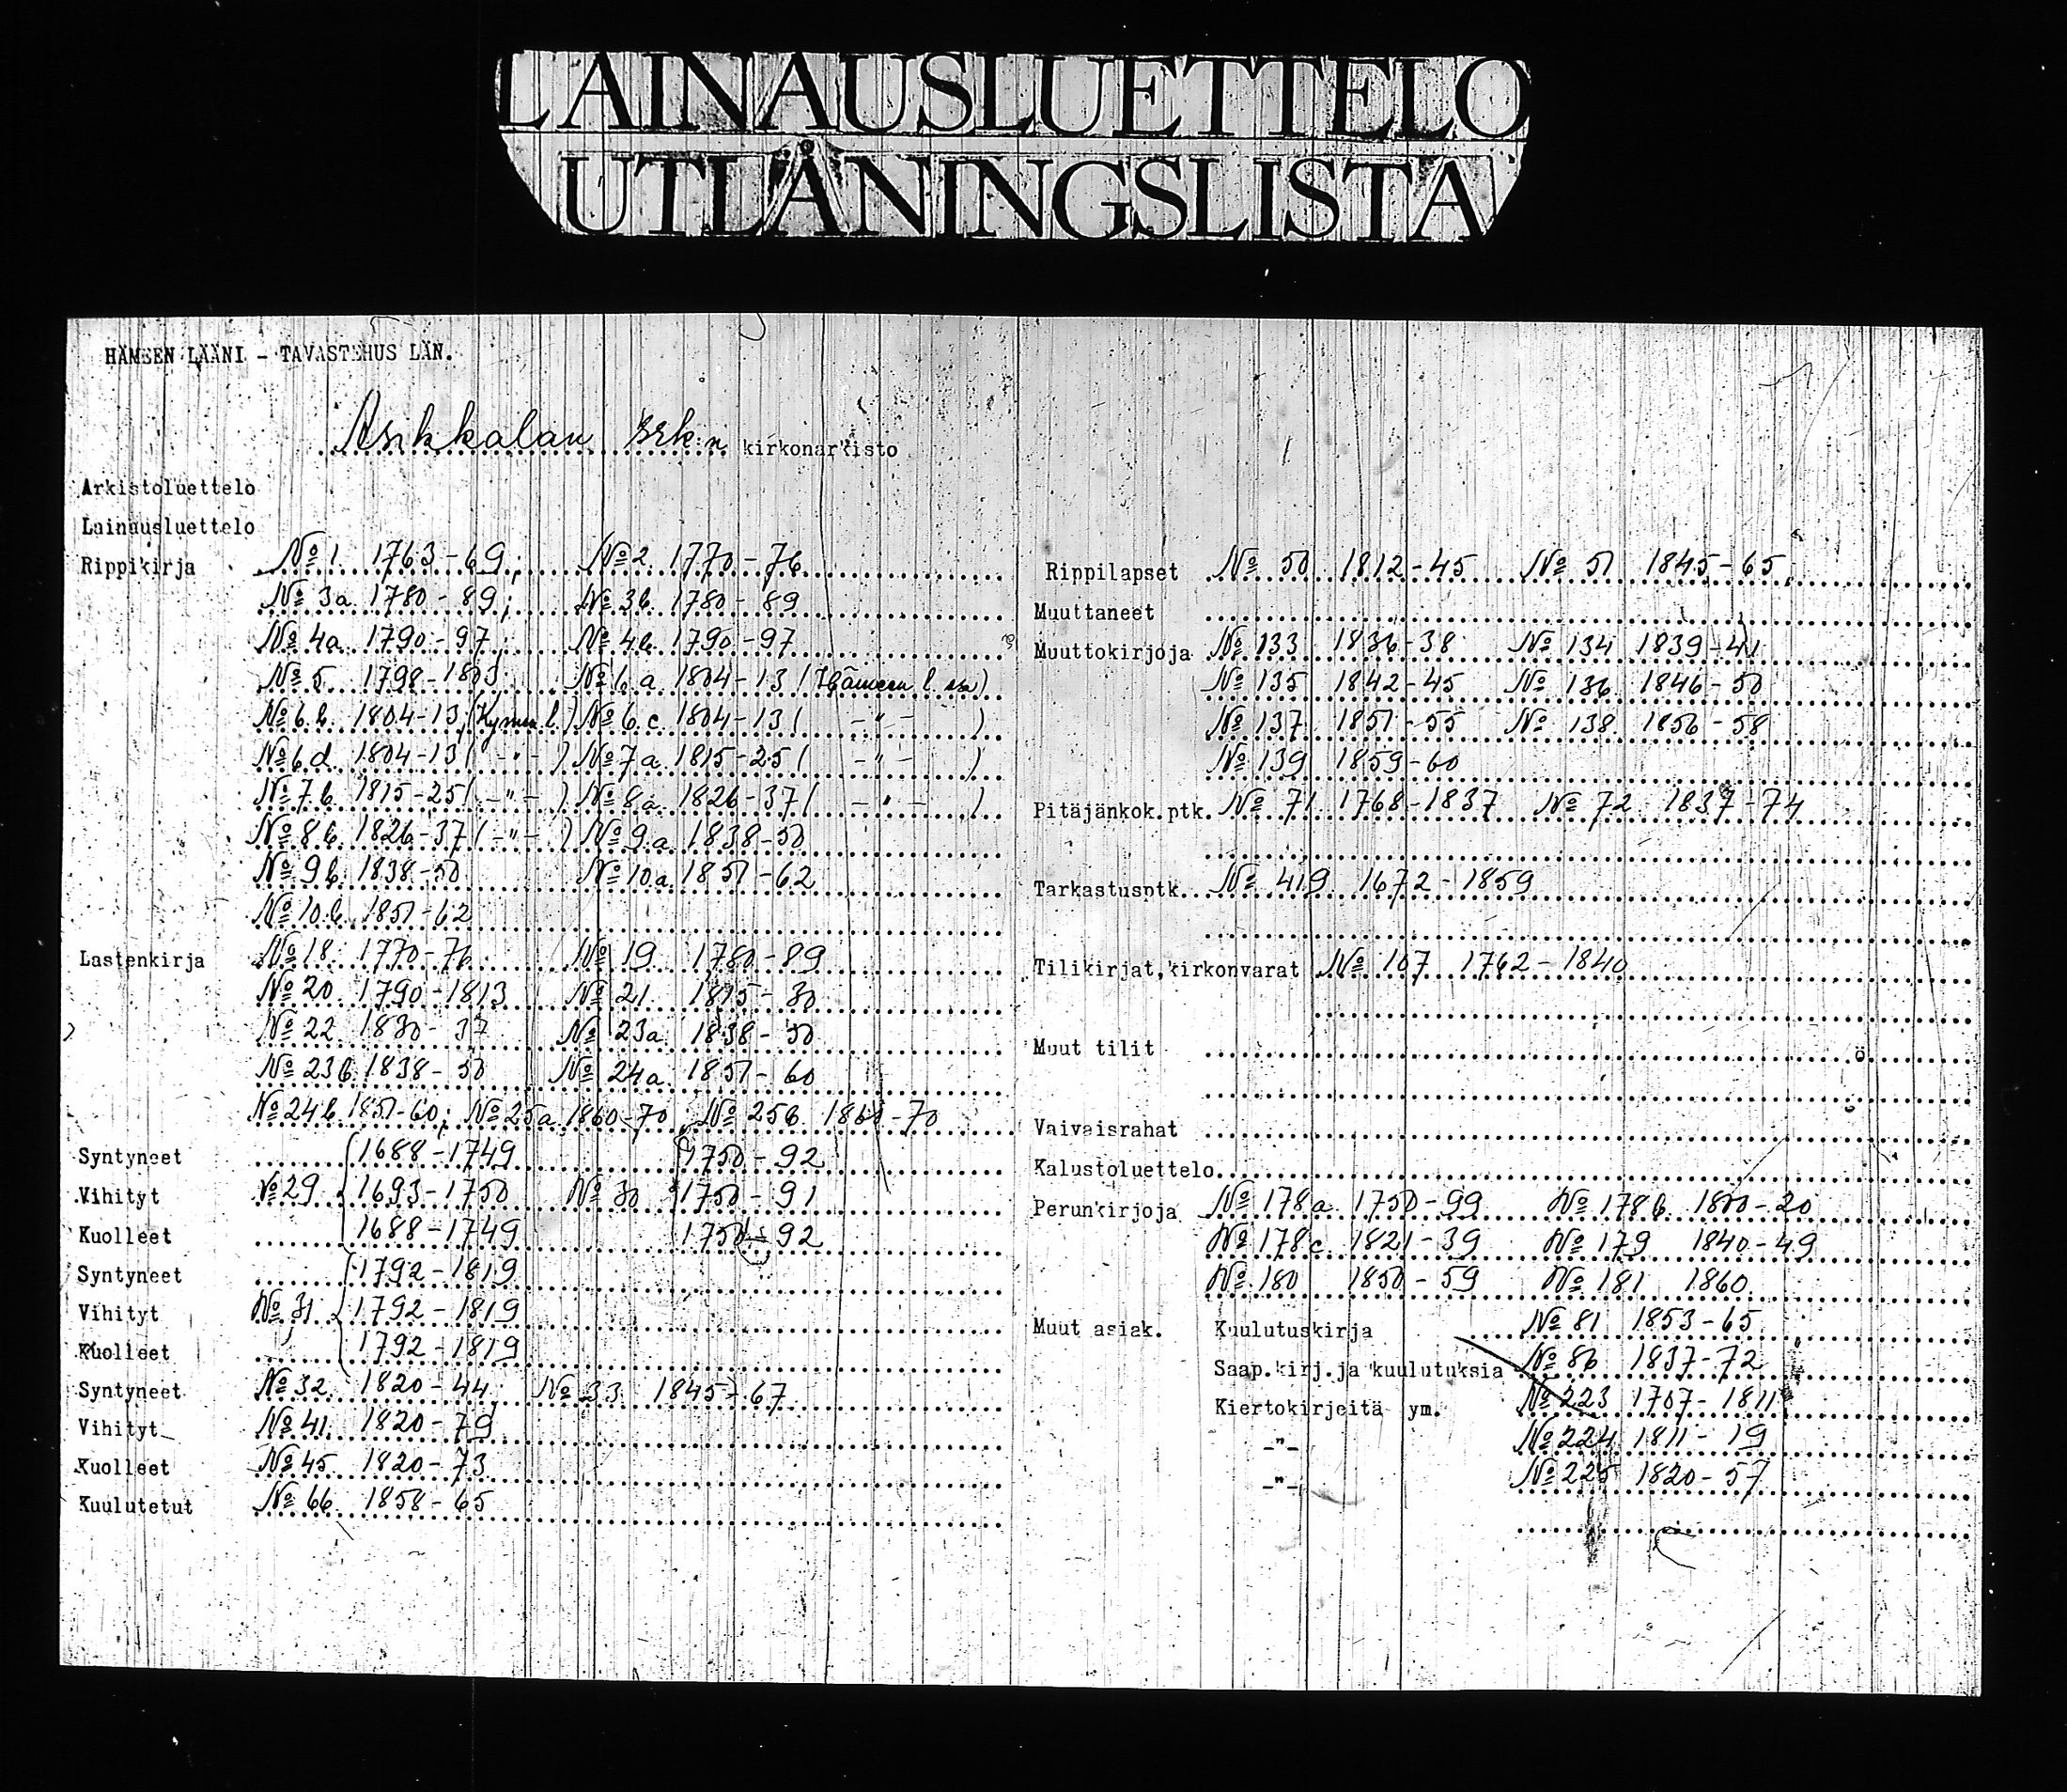 LAINAUSLUETTELO
UTLÅNINGSLISTA
HÄMEEN LÄÄNI - TAVASTEHUS LÄN.
Asikkalan srk:n kirkonarkisto
Arkistoluettelo
Lainausluettelo
Rippikirja № 1 1763-69; № 2 1770-76
№ 3a 1780-89; № 3b 1780-89
№ 4a 1790-97; № 4b 1790-97
№ 5 1798-1803 № 6a 1804-13 (Hämeen l.
№ 6b 1804-13 (Kymen l.) № 6c 1804-13 ( -"- )
№ 6d 1804-13 ( -"- ) № 7a 1815-25 ( -"- )
№ 7b 1815-25 ( -"- ) № 8a 1826-37 ( -"- )
№ 8b 1826-37 ( -"- ) № 9a 1838-50
№ 9b 1838-50 № 10a 1851-62
№ 10b 1851-62
Lastenkirja № 18 1770-76 № 19 1780-89
№ 20 1790-1813 № 21 1815-30
№ 22 1830-37 № 23a 1838-50
№ 23b 1838-50 № 24a 1851-60
№ 24b 1851-60; № 25a 1860-70 № 25b 1860-70
Syntyneet 1688-1749 1750-92
Vihityt № 29 1693-1750 № 30 1750-91
Kuolleet 1688-1749 1750-92
Syntyneet 1792-1819
Vihityt № 31 1792-1819
Kuolleet 1792-1819
Syntyneet № 32 1820-44 № 33 1845-67
Vihityt № 41 1820-79
Kuolleet № 45 1820-73
Kuulutetut № 66 1858-65
Rippilapset № 50 1812-45 № 51 1845-65
Muuttaneet
Muuttokirjoja № 133 1836-38 № 134 1839-41
№ 135 1842-45 № 136 1846-50
№ 137 1851-55 № 138 1856-58
№ 139 1859-60
Pitäjänkok.ptk. № 71 1768-1837 № 72 1837-74
Tarkastusptk. № 419 1672-1859
Tilikirjat, kirkonvarat № 107 1762-1840
Muut tilit
Vaivaisrahat
Kalustoluettelo
Perunkirjoja № 178a 1750-99 № 178b 1800-20
№ 178c 1821-39 № 179 1840-49
№ 180 1850-59 № 181 1860
Muut asiak. Kuulutuskirja № 81 1853-65
Saap.kirj.ja kuulutuksia № 86 1837-72
Kiertokirjeitä ym. № 223 1707-1811
-"- № 224 1811-19
-"- № 225 1820-57